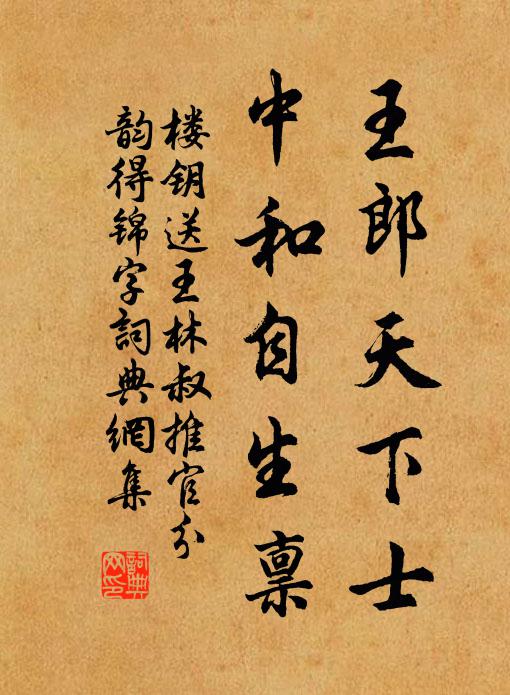 王郎天下士
中和自生禀
楼钥送王林叔推官分
韵得锦字詞典網集
詞典网印